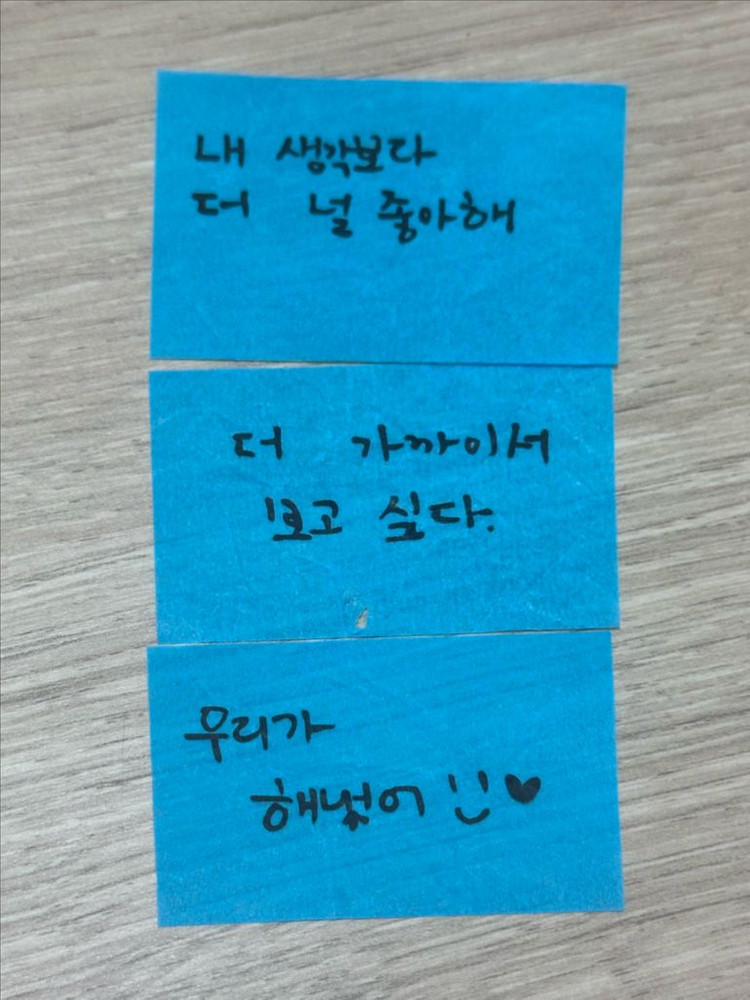 내 생각보다
더 널 좋아해
더 가까이서
보고 싶다.
우리가
해냈어 :) ♥